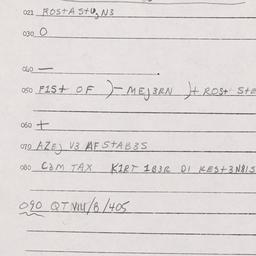 021 ROSTA STU3 N3
030 O
040 —
050 FIST OF )- MEJ3RN )+ ROST STE
060 +
070 AZEJ V3 AF STAB3S
080 C3M TAX K1RT 183R DI REST3N81S
090 QT VIII/B/405